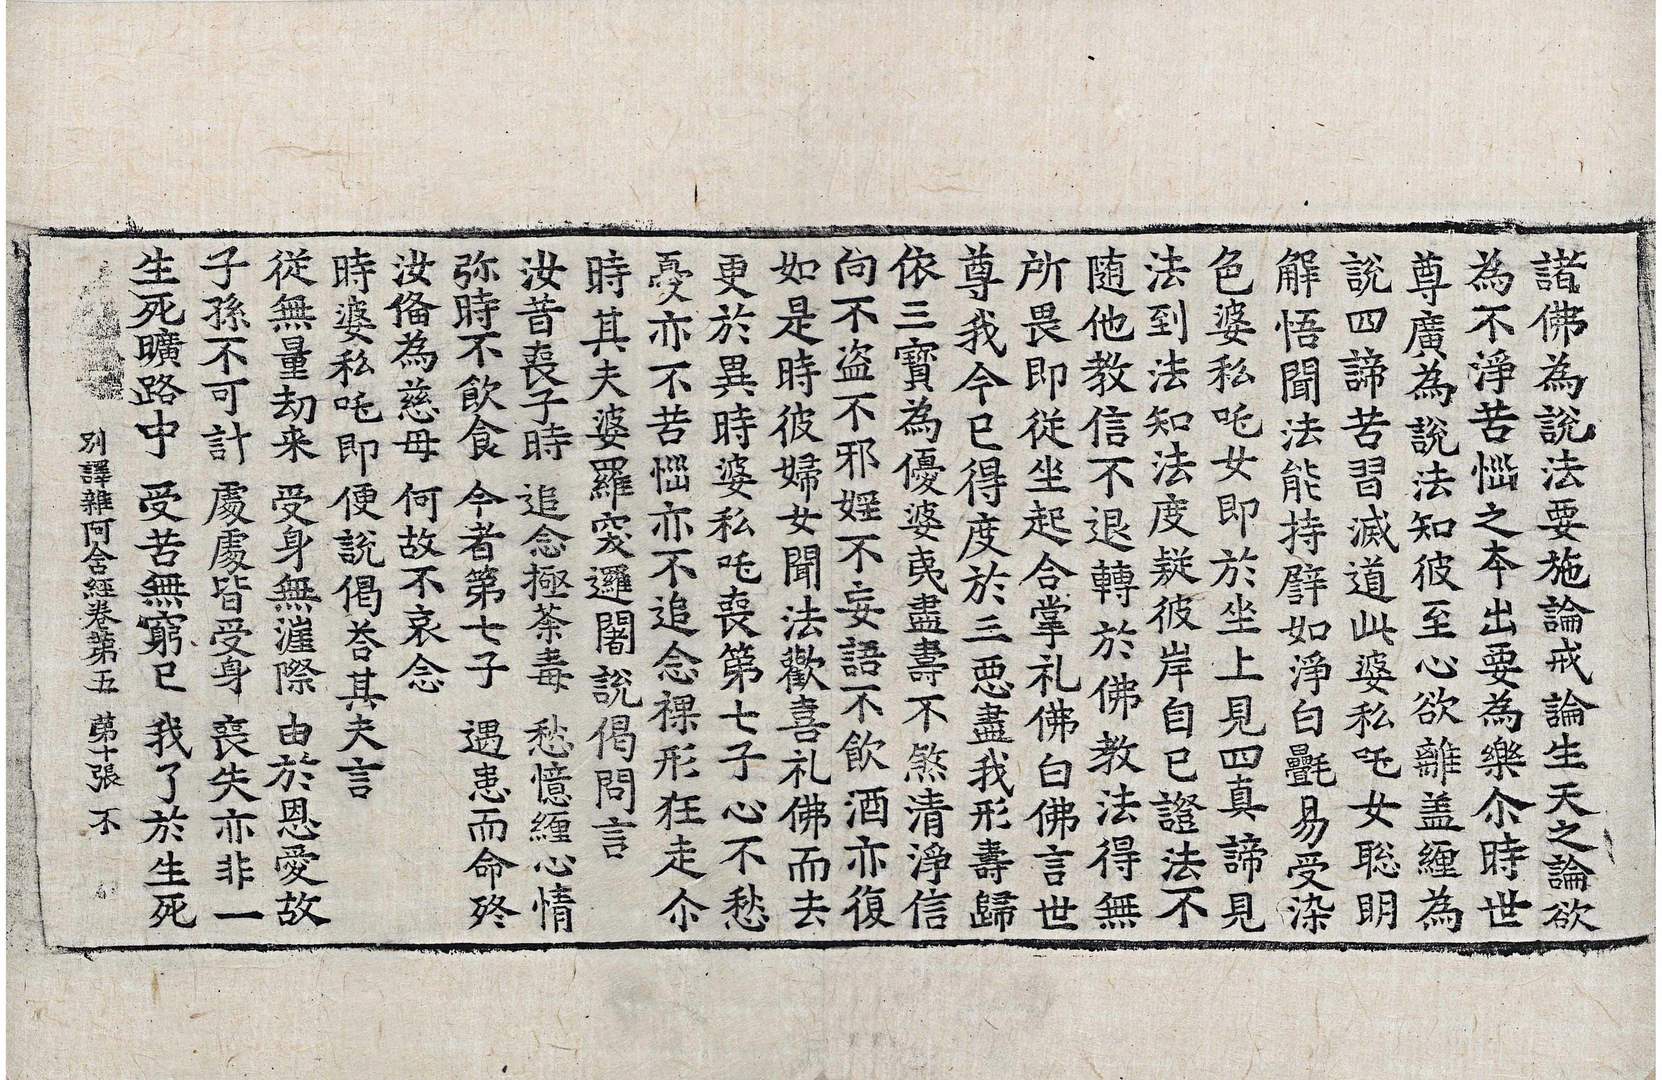 諸佛為說法要施論戒論生天之論欲
為不淨苦惱之本出要為樂尒時世
尊廣為說法知彼至心欲離盖纏為
說四諦苦習滅道此婆私吒女聡明
解悟聞法能持譬如淨白㲲易受染
色婆私吒女即於坐上見四真諦見
法到法知法度疑彼岸自已證法不
随他教信不退轉於佛教法得無
所畏即從坐起合掌礼佛白佛言世
尊我今已得度於三惡盡我形壽歸
依三寶為優婆夷盡壽不煞清淨信
向不盗不邪婬不妄語不飲酒亦復
如是時彼婦女聞法歡喜礼佛而去
更於異時婆私吒喪第七子心不愁
憂亦不苦惱亦不追念裸形狂走尒
時其夫婆羅突邏闍說偈問言
汝昔喪子時 追念極荼毒 愁憶纏心情
弥時不飲食 今者第七子 遇患而命終
汝俻為慈母 何故不哀念
時婆私吒即便說偈荅其夫言
從無量劫来 受身無涯際 由於恩愛故
子孫不可計 處處皆受身 喪失亦非一
生死曠路中 受苦無窮已 我了於生死
別譯雜阿含經卷第五 第十張 不